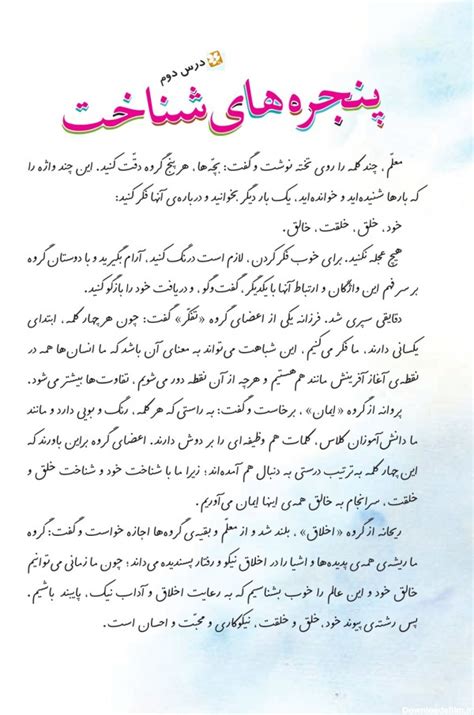 درس دوم
پنجره‌های شناخت
معلّم، چند کلمه را روی تخته نوشت و گفت: بچّه‌ها، هر پنج گروه دقّت کنید. این چند واژه را
که بارها شنیده‌اید و خوانده‌اید، یک بار دیگر بخوانید و درباره‌ی آنها فکر کنید:
خود، خلق، خلقت، خالق.
هیچ عجله نکنید. برای خوب فکر کردن، لازم است درنگ کنید، آرام بگیرید و با دوستان گروه
بر سر فهم این واژگان و ارتباط آنها با یکدیگر، گفت‌وگو، و دریافت خود را بازگو کنید.
دقایقی سپری شد. فرزانه یکی از اعضای گروه «تفکّر» گفت: چون هر چهار کلمه، ابتدای
یکسانی دارند، ما فکر می‌کنیم، این شباهت می‌تواند به معنای آن باشد که ما انسان‌ها همه در
نقطه‌ی آغاز آفرینش مانند هم هستیم و هرچه از آن نقطه دور می‌شویم، تفاوت‌ها بیشتر می‌شود.
پروانه از گروه «ایمان»، برخاست و گفت: به راستی که هر کلمه، رنگ و بویی دارد و مانند
ما دانش‌آموزان کلاس، کلمات هم وظیفه‌ای را بر دوش دارند. اعضای گروه بر این باورند که
این چهار کلمه به ترتیب درستی به دنبال هم آمده‌اند؛ زیرا ما با شناخت خود و شناخت خلق و
خلقت، سرانجام به خالق همه‌ی اینها ایمان می‌آوریم.
ریحانه از گروه «اخلاق»، بلند شد و از معلّم و بقیه‌ی گروه‌ها اجازه خواست و گفت: گروه
ما ریشه‌ی همه‌ی پدیده‌ها و اشیا را در اخلاق نیکو و رفتار پسندیده می‌داند؛ چون ما زمانی می‌توانیم
خالق خود و این عالم را خوب بشناسیم که به رعایت اخلاق و آداب نیک، پایبند باشیم.
پس رشته‌ی پیوند خود، خلق و خلقت، نیکوکاری و محبّت و احسان است.